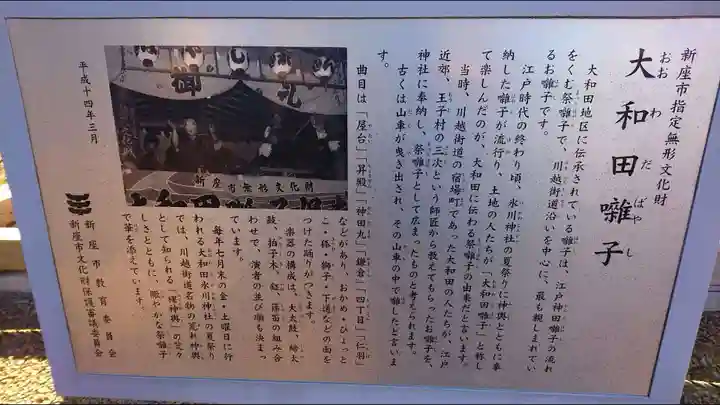 新座市指定無形文化財
おおわだばやし
大和田囃子
大和田地区に伝承されている囃子は、江戸神田囃子の流れ
をくむ祭囃子で、川越街道沿いを中心に、最も親しまれてい
るお囃子です。
江戸時代の終わり頃、氷川神社の夏祭りに神輿とともに奉
納した囃子が流行り、土地の人たちが「大和田囃子」と称し
て楽しんだのが、大和田に伝わる祭囃子の由来だと言います。
当時、川越街道の宿場町であった大和田の人たちが、江戸
近郊、王子村の三次という師匠から教えてもらったお囃子を、
神社に奉納し、祭囃子として広まったものと考えられます。
古くは山車が曳き出され、その山車の中で囃したと言いま
す。
曲目は「屋台」「昇殿」「神田丸」「鎌倉」「四丁目」「仁羽」
などがあり、おかめ・ひょっと
こ・狐・獅子・下通などの面を
つけた踊りがつきます。
楽器の構成は、大太鼓、締太
鼓、拍子木、鉦、篠笛の組み合
わせで、演者の並び順も決まっ
ています。
毎年七月末の金・土曜日に行
われる大和田氷川神社の夏祭り
では、川越街道名物の荒れ神輿
として知られる「裸神輿」の
しさとともに、賑やかな祭囃子
で華を添えています。
平成十四年三月
新座市教育委員会
新座市文化財保護審議委員会
新座市無形文化財